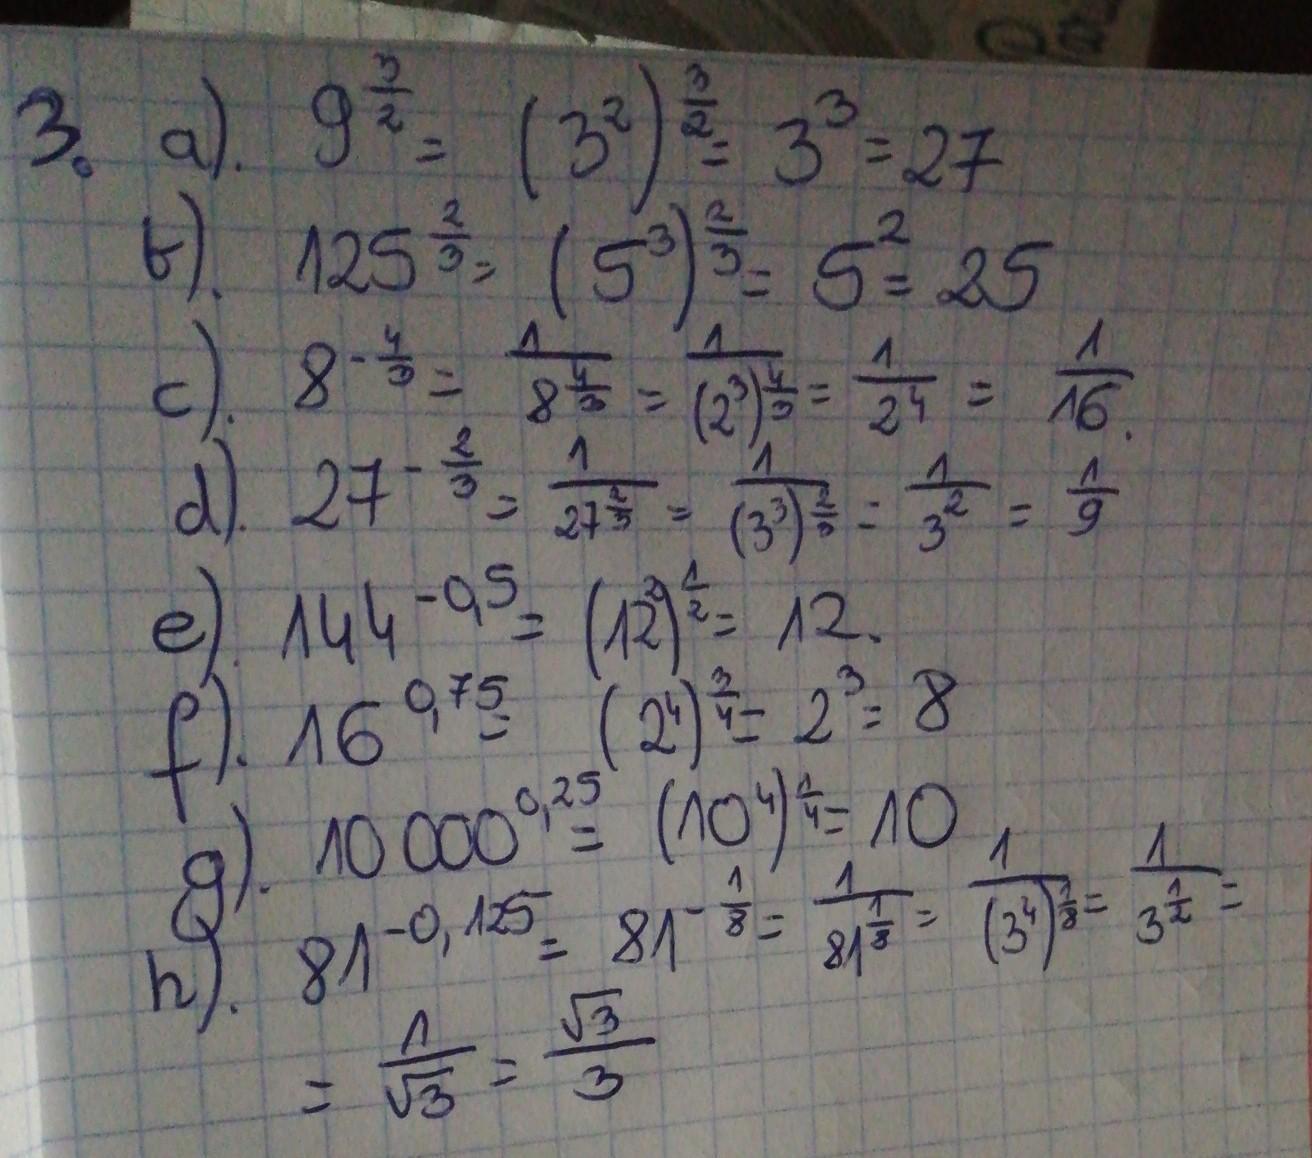 3. a). 9^(3/2) = (3^2)^(3/2) = 3^3 = 27
b). 125^(2/3) = (5^3)^(2/3) = 5^2 = 25
c). 8^(-4/3) = 1/8^(4/3) = 1/(2^3)^(4/3) = 1/2^4 = 1/16.
d). 27^(-2/3) = 1/27^(2/3) = 1/(3^3)^(2/3) = 1/3^2 = 1/9
e). 144^(-0,5) = (12^2)^(1/2) = 12.
f). 16^(0,75) = (2^4)^(3/4) = 2^3 = 8
g). 10 000^(0,25) = (10^4)^(1/4) = 10
h). 81^(-0,125) = 81^(-1/8) = 1/81^(1/8) = 1/(3^4)^(1/8) = 1/3^(1/2) =
= 1/√3 = √3/3